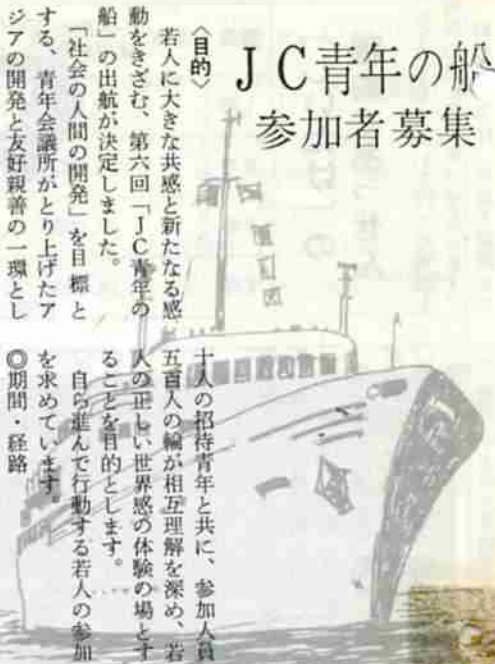 JC青年の船
参加者募集
〈目的〉
若人に大きな共感と新たなる感
動をきざむ、第六回「JC青年の
船」の出航が決定しました。
「社会の人間の開発」を目標と
する、青年会議所がとり上げたア
ジアの開発と友好親善の一環とし
十人の招待青年と共に、参加人員
五百人の輪が相互理解を深め、若
人の正しい世界感の体験の場とす
ることを目的とします。
自ら進んで行動する若人の参加
を求めています。
◎期間・経路